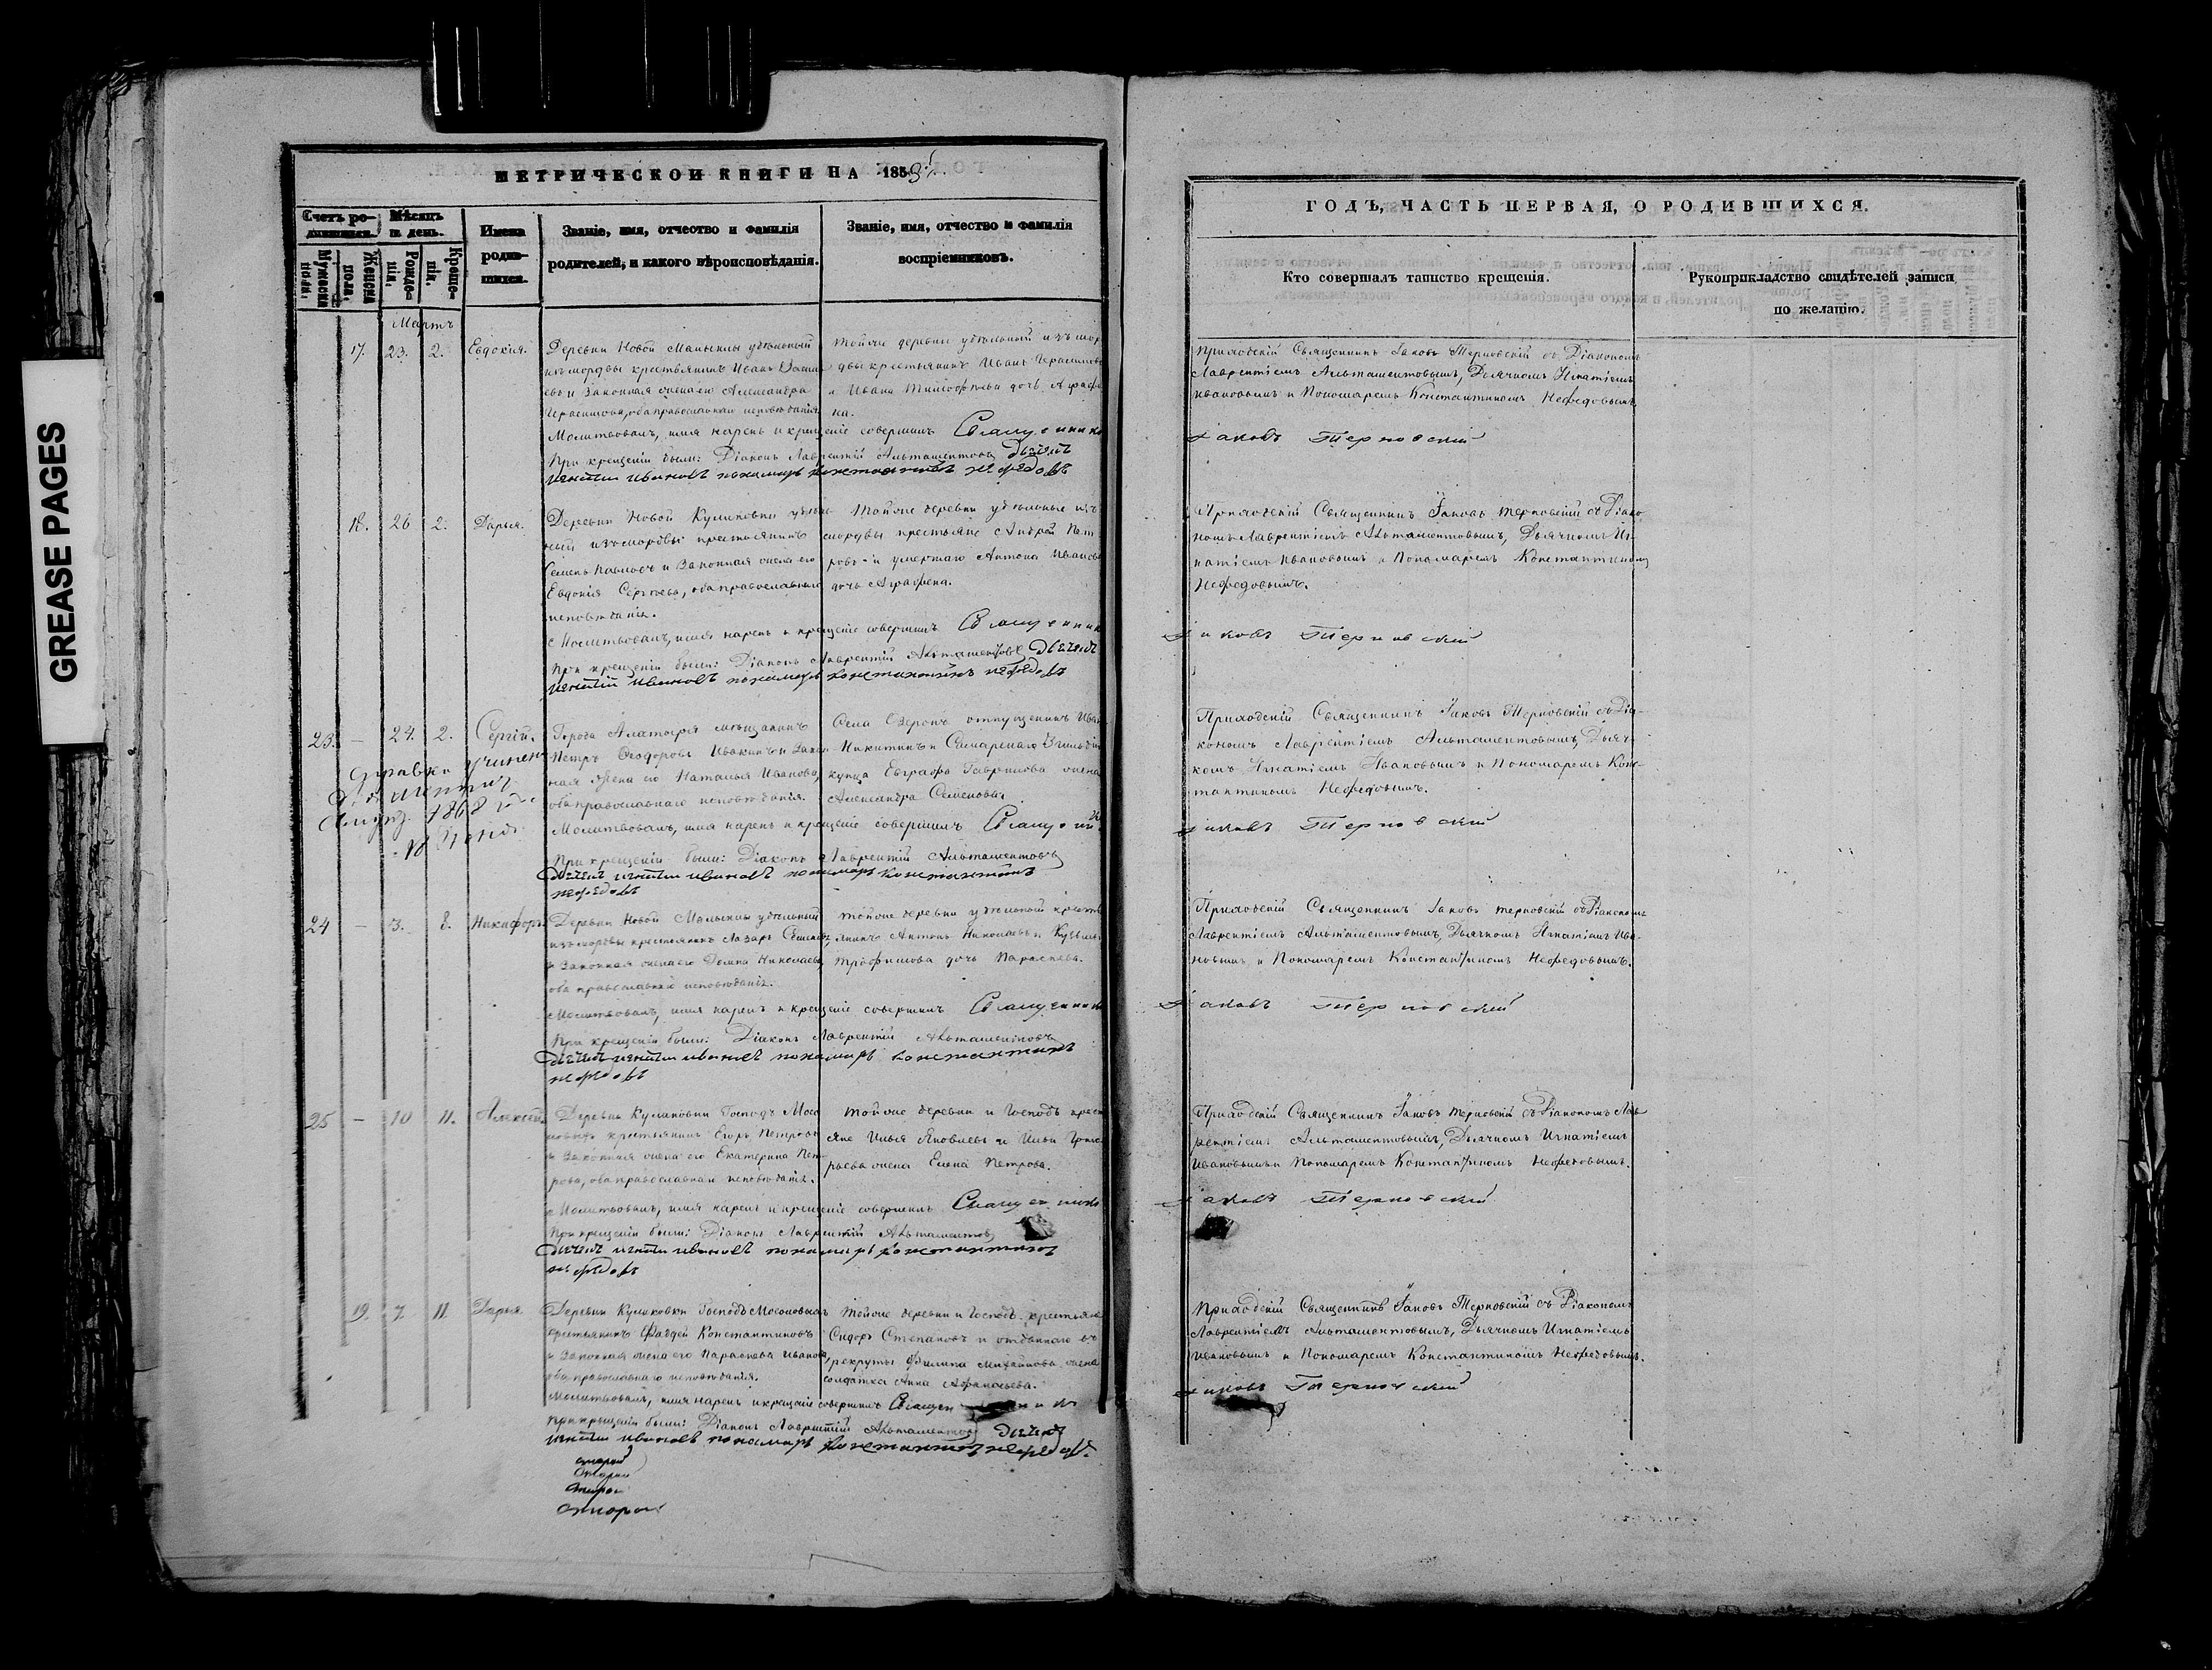 GREASE PAGES
МЕТРИЧЕСКОЙ КНИГИ НА 1859.
Счетъ ро-
дившихся.
Мѣсяцъ
и день.
Имена
родив-
шихся.
Званіе, имя, отчество и фамилія
родителей, и какого вѣроисповѣданія.
Званіе, имя, отчество и фамилія
воспріемниковъ.
Мужеска
пола.
Женска
пола.
Рожде-
нія.
Креще-
нія.
Мартъ
17. 23. 2. Евдокія.
Деревни Новой Малыклы удѣльный
изъ мордвы крестьянинъ Иванъ
евъ и законная жена его Александра
Герасимова, оба православнаго исповѣданія.
Тойже деревни удѣльный изъ мор
двы крестьянинъ Иванъ Герасимовъ
и Ивана Тимофѣева дочь Аграфе
на.
Молитвовалъ, имя нарекъ и крещеніе совершилъ Священникъ
При крещеніи были: Діаконъ Лаврентій Альтаментовъ Дьячекъ
Игнатій Ивановъ пономарь Константинъ Нефедовъ
18. 26 2. Дарья.
Деревни Новой Куликовки удѣль
ный изъ мордвы крестьянинъ
Семенъ Павловъ и законная жена его
Евдокія Сергѣева, оба православнаго
исповѣданія.
Тойже деревни удѣльные изъ
мордвы крестьяне Андрей Пет
ровъ и умершаго Антона Иванова
дочь Аграфена.
Молитвовалъ, имя нарекъ и крещеніе совершилъ Священникъ
При крещеніи были: Діаконъ Лаврентій Альтаментовъ Дьячекъ
Игнатій Ивановъ пономарь Константинъ Нефедовъ
23. – 24. 2. Сергій.
Города Алатыря мѣщанинъ
Петръ Ѳеодоровъ Ивакинъ и закон
ная жена его Наталья Иванова,
оба православнаго исповѣданія.
Села Озерокъ отпущенникъ Иванъ
Никитинъ и Самарскаго 3 гильдіи
купца Евграфа Гаврилова жена
Александра Семенова.
Справка учинена
1868 г.
Молитвовалъ, имя нарекъ и крещеніе совершилъ Священникъ
При крещеніи были: Діаконъ Лаврентій Альтаментовъ
Дьячекъ Игнатій Ивановъ пономарь Константинъ
Нефедовъ
24 – 3. 8. Никифоръ.
Деревни Новой Малыклы удѣльный
изъ мордвы крестьянинъ Лазарь Семеновъ,
и законная жена его Домна Николаева,
оба православнаго исповѣданія.
Тойже деревни удѣльной кресть
янинъ Антонъ Николаевъ и Кузьмы
Трофимова дочь Параскева.
Молитвовалъ, имя нарекъ и крещеніе совершилъ Священникъ
При крещеніи были: Діаконъ Лаврентій Альтаментовъ
Дьячекъ Игнатій Ивановъ пономарь Константинъ
Нефедовъ
25 – 10 11. Алексѣй.
Деревни Куликовки Господъ Мосо
ловыхъ крестьянинъ Егоръ Петровъ
и законная жена его Екатерина Пет
рова, оба православнаго исповѣданія.
Тойже деревни и Господъ крест
яне Илья Яковлевъ и Ильи Григо
рьева жена Елена Петрова.
Молитвовалъ, имя нарекъ и крещеніе совершилъ Священникъ
При крещеніи были: Діаконъ Лаврентій Альтаментовъ
Дьячекъ Игнатій Ивановъ пономарь Константинъ
Нефедовъ
19. 7. 11 Дарья
Деревни Куликовки Господъ Мосоловыхъ
крестьянинъ Фаддей Константиновъ
и законная жена его Параскева Иванова,
оба православнаго исповѣданія.
Тойже деревни и Господъ крестьяне
Сидоръ Степановъ и отданнаго въ
рекруты Филипа Михайлова жена
солдатка Анна Афанасьева.
Молитвовалъ, имя нарекъ и крещеніе совершилъ Священникъ
При крещеніи были: Діаконъ Лаврентій Альтаментовъ Дьячекъ
Игнатій Ивановъ пономарь Константинъ Нефедовъ.
ГОДЪ, ЧАСТЬ ПЕРВАЯ, О РОДИВШИХСЯ.
Кто совершалъ таинство крещенія.
Рукоприкладство свидѣтелей записи
по желанію.
Приходскій Священникъ Іаковъ Терновскій съ Діакономъ
Лаврентіемъ Альтаментовымъ, Дьячкомъ Игнатіемъ
Ивановымъ и Пономаремъ Константиномъ Нефедовымъ.
Іаковъ Терновскій
Приходскій Священникъ Іаковъ Терновскій съ Діако-
номъ Лаврентіемъ Альтаментовымъ, Дьячкомъ Иг-
натіемъ Ивановымъ и Пономаремъ Константиномъ
Нефедовымъ.
Іаковъ Терновскій
Приходскій Священникъ Іаковъ Терновскій съ Діа-
кономъ Лаврентіемъ Альтаментовымъ, Дьяч-
комъ Игнатіемъ Ивановымъ и Пономаремъ Конс-
тантиномъ Нефедовымъ.
Іаковъ Терновскій
Приходскій Священникъ Іаковъ Терновскій съ Діакономъ
Лаврентіемъ Альтаментовымъ, Дьячкомъ Игнатіемъ Ива-
новымъ и Пономаремъ Константиномъ Нефедовымъ.
Іаковъ Терновскій
Приходскій Священникъ Іаковъ Терновскій съ Діакономъ Лав
рентіемъ Альтаментовымъ, Дьячкомъ Игнатіемъ
Ивановымъ и Пономаремъ Константиномъ Нефедовымъ.
Іаковъ Терновскій
Приходскій Священникъ Іаковъ Терновскій съ Діакономъ
Лаврентіемъ Альтаментовымъ, Дьячкомъ Игнатіемъ
Ивановымъ и Пономаремъ Константиномъ Нефедовымъ.
Іаковъ Терновскій